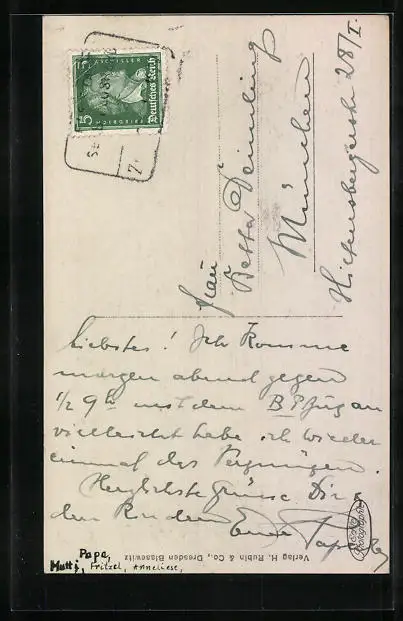 FRIEDRICH v. SCHILLER
Deutsches Reich
5
Frau
Betta Deimling
München
28/I
Liebstes! Ich komme
morgen abend gegen
1/2 9h mit dem B P Zug an
vielleicht habe ich wieder
einmal das Vergnügen.
Herzlichste Grüsse Dir &
den Kindern Euer Papa
Verlag H. Rubin & Co., Dresden Blasewitz
Echte Photographie
Papa,
Mutti, Fritzel, Anneliese,